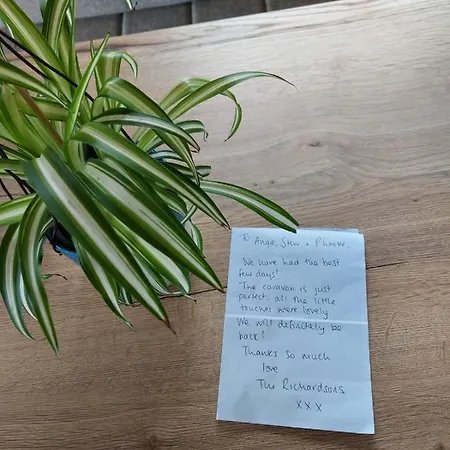 To Angie, Stew + Phoebe,
We have had the best
few days!
The caravan is just
perfect, all the little
touches were lovely
We will definitely be
back!
Thanks so much
love
The Richardsons
xxx